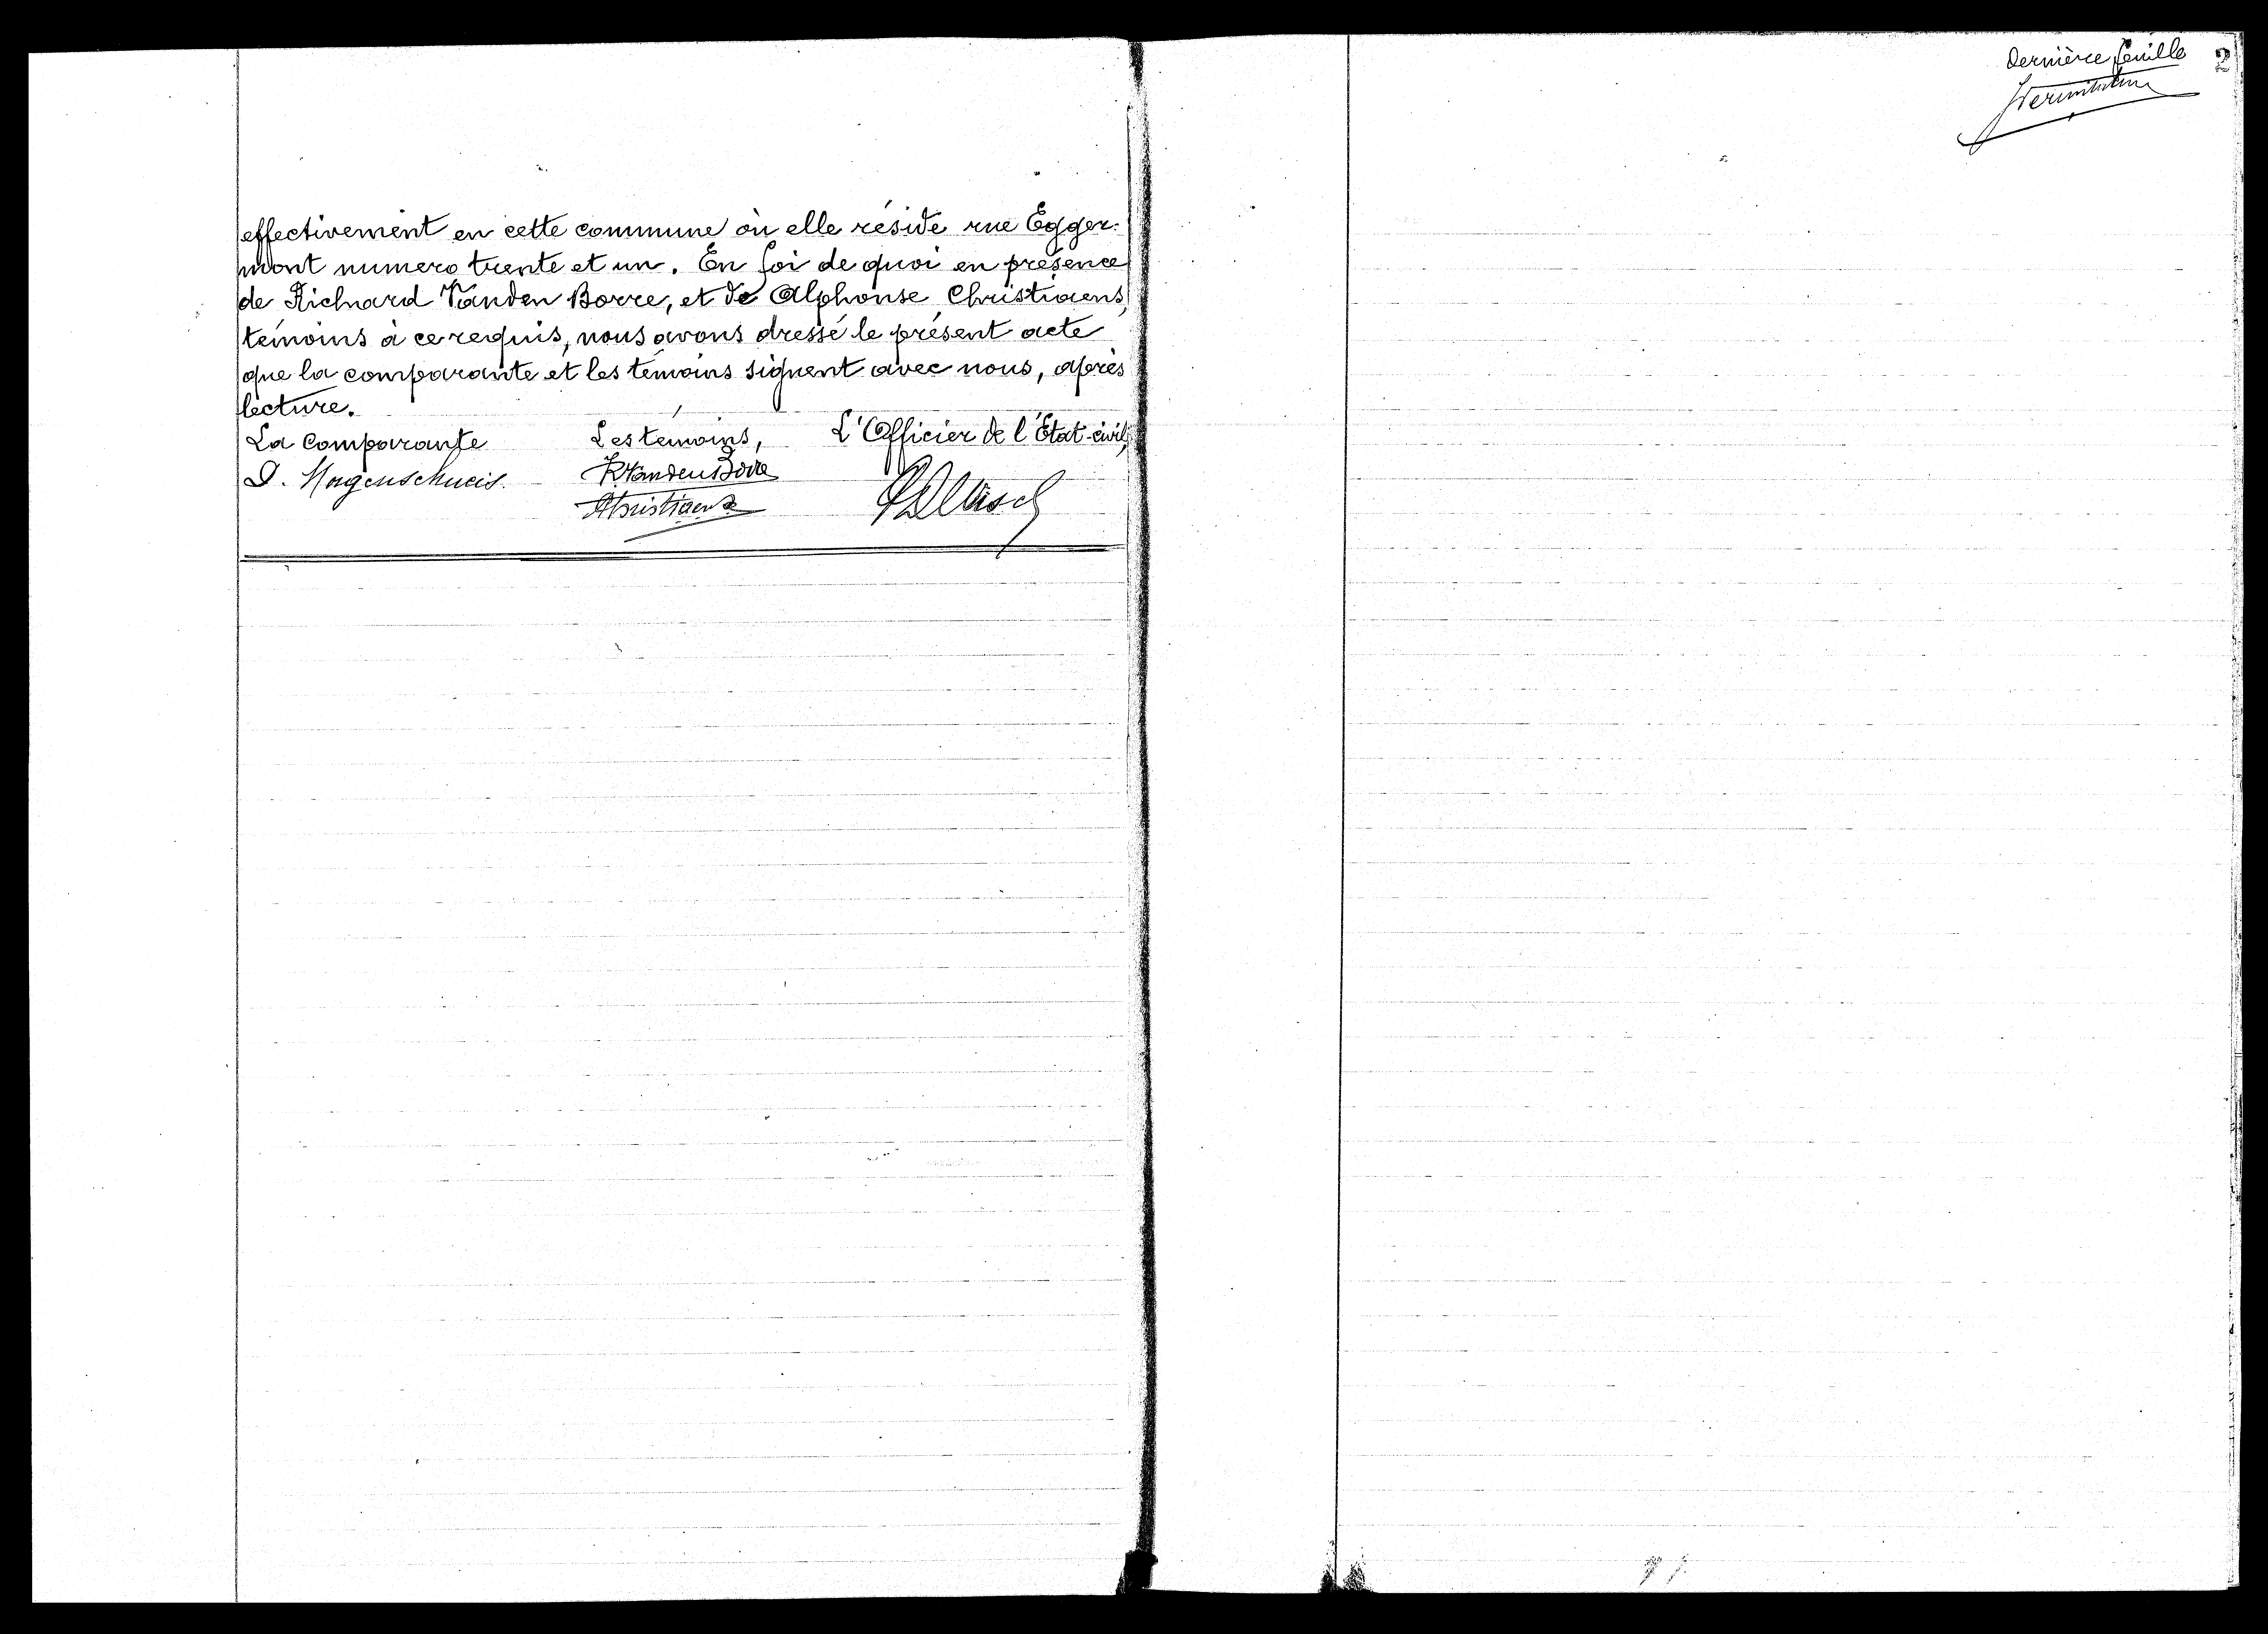 effectivement en cette commune où elle réside rue Egger-
mont numero trente et un. En foi de quoi en présence
de Richard Vanden Borre, et de Alphonse Christiaens,
témoins à ce requis, nous avons dressé le présent acte
que la comparante et les témoins signent avec nous, après
lecture.
La Comparante Les témoins, L'Officier de l'Etat-civil,
RVandenBorre
AChristiaens
Dernière feuille
2